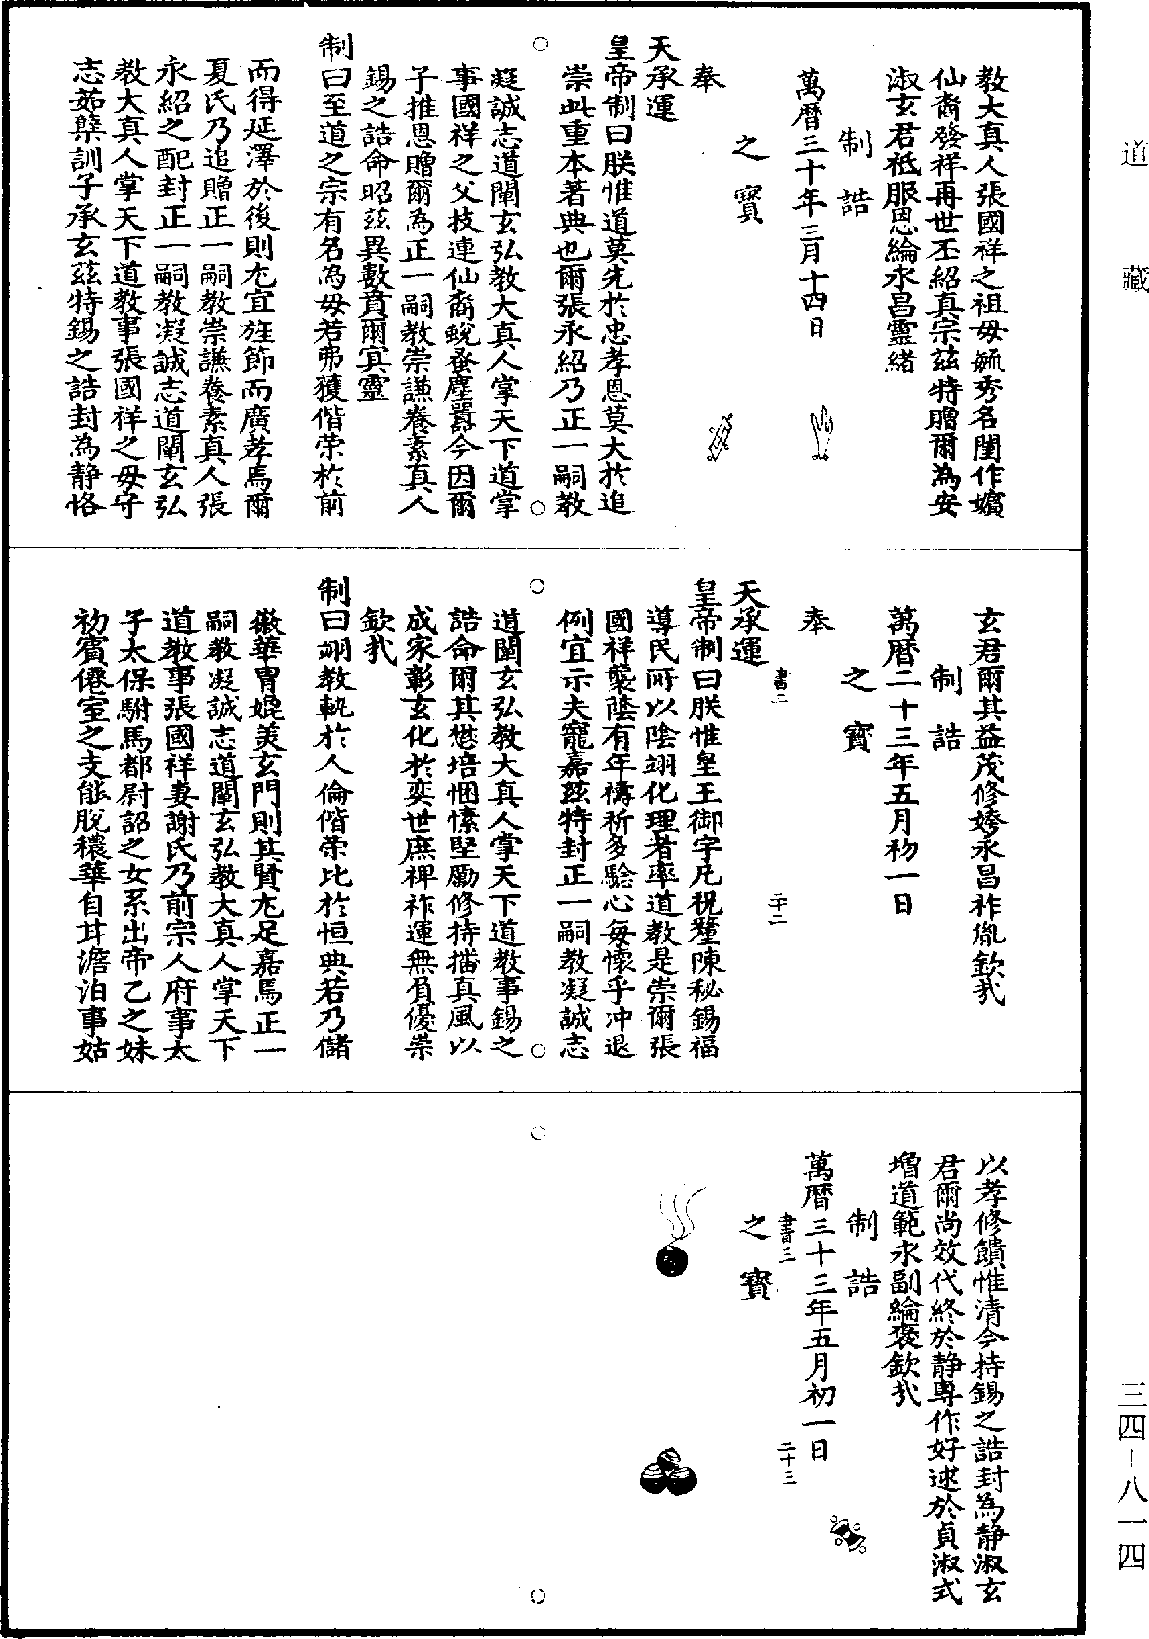 道藏
教大真人張國祥之祖母毓秀名閨作嬪
仙裔發祥再世丕紹真宗茲特贈爾為安
淑玄君祗服恩綸永昌靈緒
制誥
萬曆三十年三月十四日
之寶
奉
天承運
皇帝制曰朕惟道莫先於忠孝恩莫大於追
崇此重本著典也爾張永紹乃正一嗣教
凝誠志道闡玄弘教大真人掌天下道掌
事國祥之父技連仙裔蛻蚤塵囂今因爾
子推恩贈爾為正一嗣教崇謙養素真人
錫之誥命昭茲異數賁爾冥靈
制曰至道之宗有名為母若弗獲偕荣於前
而得延澤於後則尤宜旌節而廣孝焉爾
夏氏乃追贈正一嗣教崇謙養素真人張
永紹之配封正一嗣教凝誠志道闡玄弘
教大真人掌天下道教事張國祥之母守
志茹蘖訓子承玄茲特錫之誥封為静恪
玄君爾其益茂修姱永昌祚胤欽哉
制誥
萬曆二十三年五月初一日
之寶
奉
書二
二十二
天承運
皇帝制曰朕惟皇王御宇凡祝釐陳秘錫福
導民所以陰翊化理者率道教是崇爾張
國祥襲蔭有年禱祈多驗心每懷乎冲退
例宜示夫寵嘉茲特封正一嗣教凝誠志
道闡玄弘教大真人掌天下道教事錫之
誥命爾其懋培悃愫堅勵修持播真風以
成家彰玄化於奕世庶禆祚運無負優崇
欽哉
制曰翊教軌於人倫偕荣比於恒典若乃儲
徽華胄媲美玄門則其賢尤足嘉焉正一
嗣教凝誠志道闡玄弘教大真人掌天下
道教事張國祥妻謝氏乃前宗人府事太
子太保駙馬都尉詔之女系出帝乙之妹
初賓僊室之支能脫穠華自甘澹泊事姑
以孝修饋惟清今持錫之誥封為静淑玄
君爾尚效代終於静專作好逑於貞淑式
增道範永副綸褒欽哉
制誥
萬曆三十三年五月初一日
書三
二十三
之寶
三四-八一四